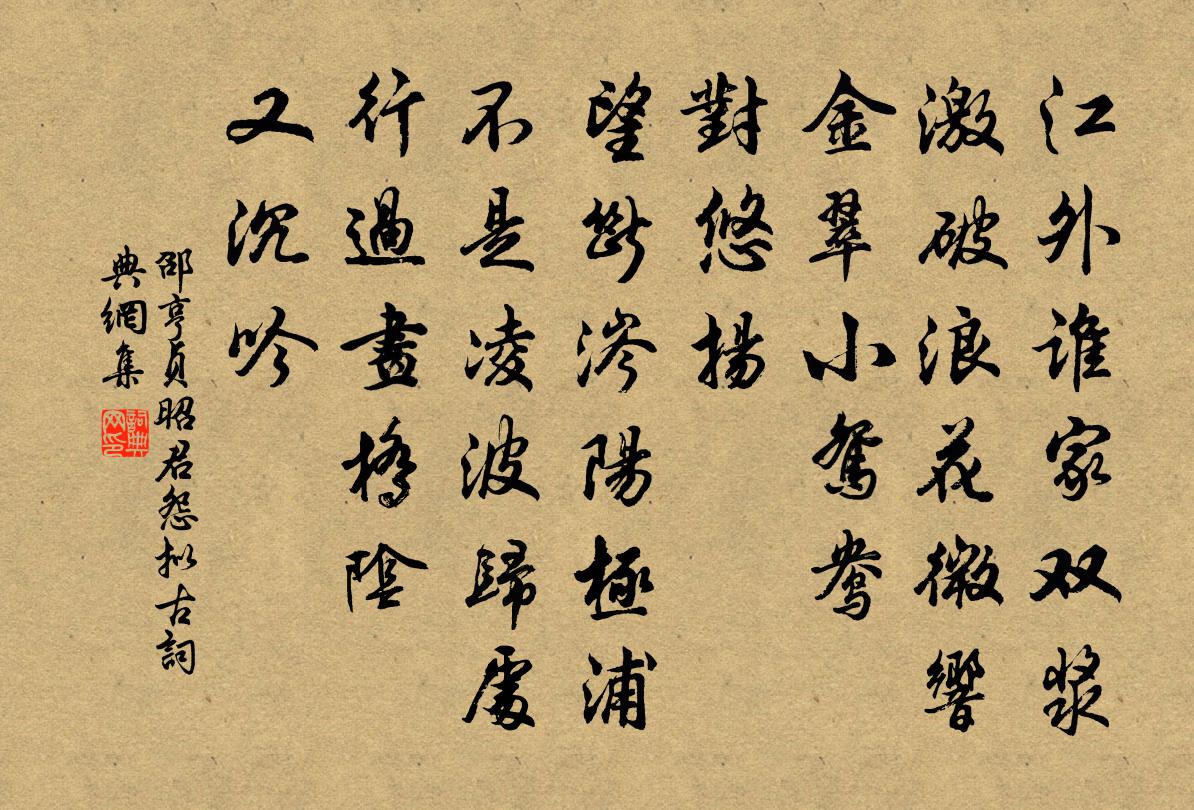 江外誰家双槳
激破浪花微響
金翠小鴛鴦
對悠揚
望斷涔陽極浦
不是凌波歸處
行過畫橋陰
又沉吟
邵亨貞昭君怨拟古詞
典網集
詞典
网印